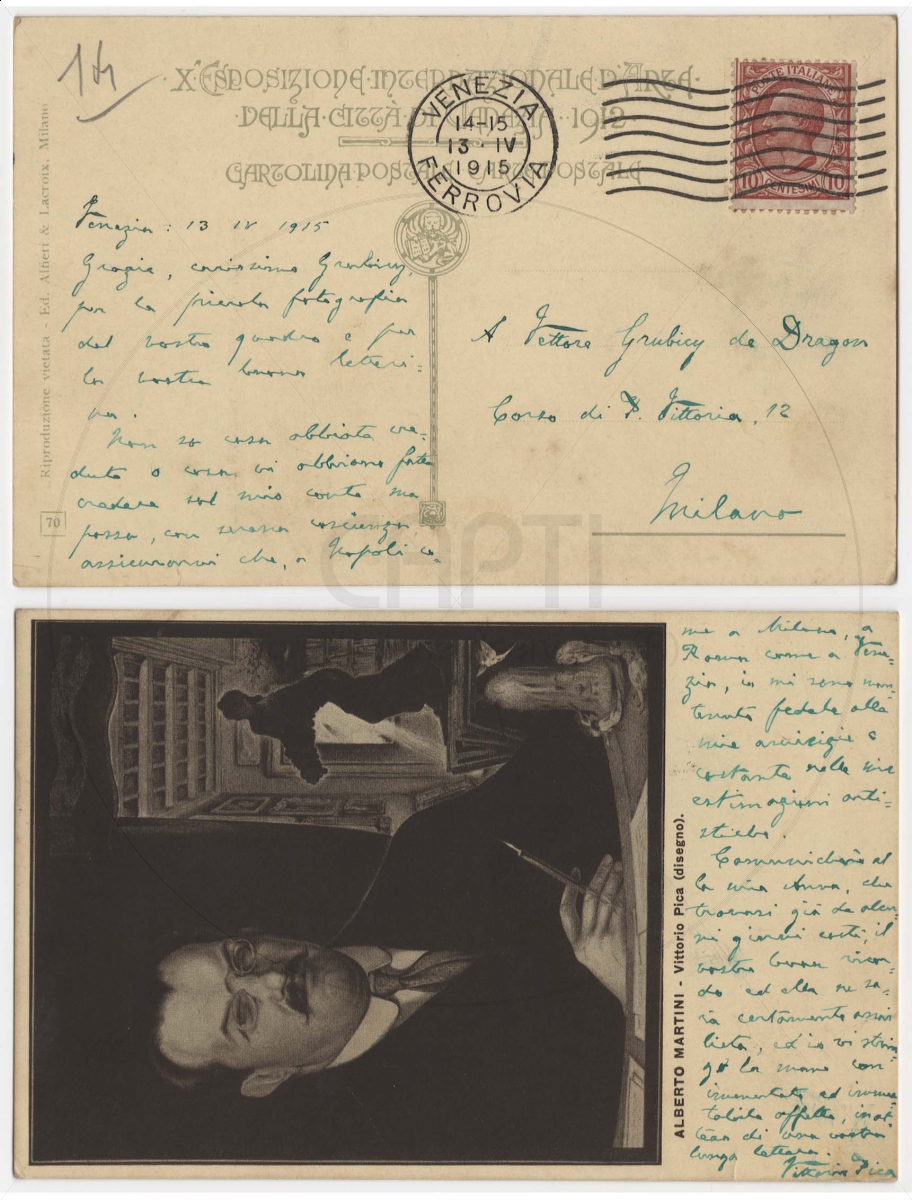 14
X. ESPOSIZIONE INTERNAZIONALE D'ARTE
DELLA CITTÀ DI VENEZIA · 1912
CARTOLINA POSTALE CARTE POSTALE
VENEZIA
14-15
13 · IV
1915
FERROVIA
POSTE ITALIANE
10 CENTESIMI 10
Riproduzione vietata - Ed. Alfieri & Lacroix, Milano
70
Venezia: 13 IV 1915
Grazie, carissimo Grubicy,
per la piccola fotografia
del vostro quadro e per
la vostra buona letteri=
na.
Non so cosa abbiate cre=
duto o cosa vi abbiano fatto
credere sul mio conto ma
posso, con serena coscienza
assicurarvi che, a Napoli co
A Vettore Grubicy de Dragon
Corso di P. Vittoria, 12
Milano
CAPTI
me a Milano, a
Roma come a Vene=
zia, io mi sono man=
tenuto fedele alle
mie amicizie e
costante nelle mie
estimazioni arti=
stiche.
Comunicherò al
la mia Anna, che
trovasi già da alcu=
ni giorni costì, il
vostro buon ricor=
do ed ella ne sa=
rà certamente assai
lieta, ed io vi strin
go la mano con
ed immu=
tabile affetto, in at=
tesa di una vostra
lunga lettera.
Vittorio Pica
ALBERTO MARTINI - Vittorio Pica (disegno).